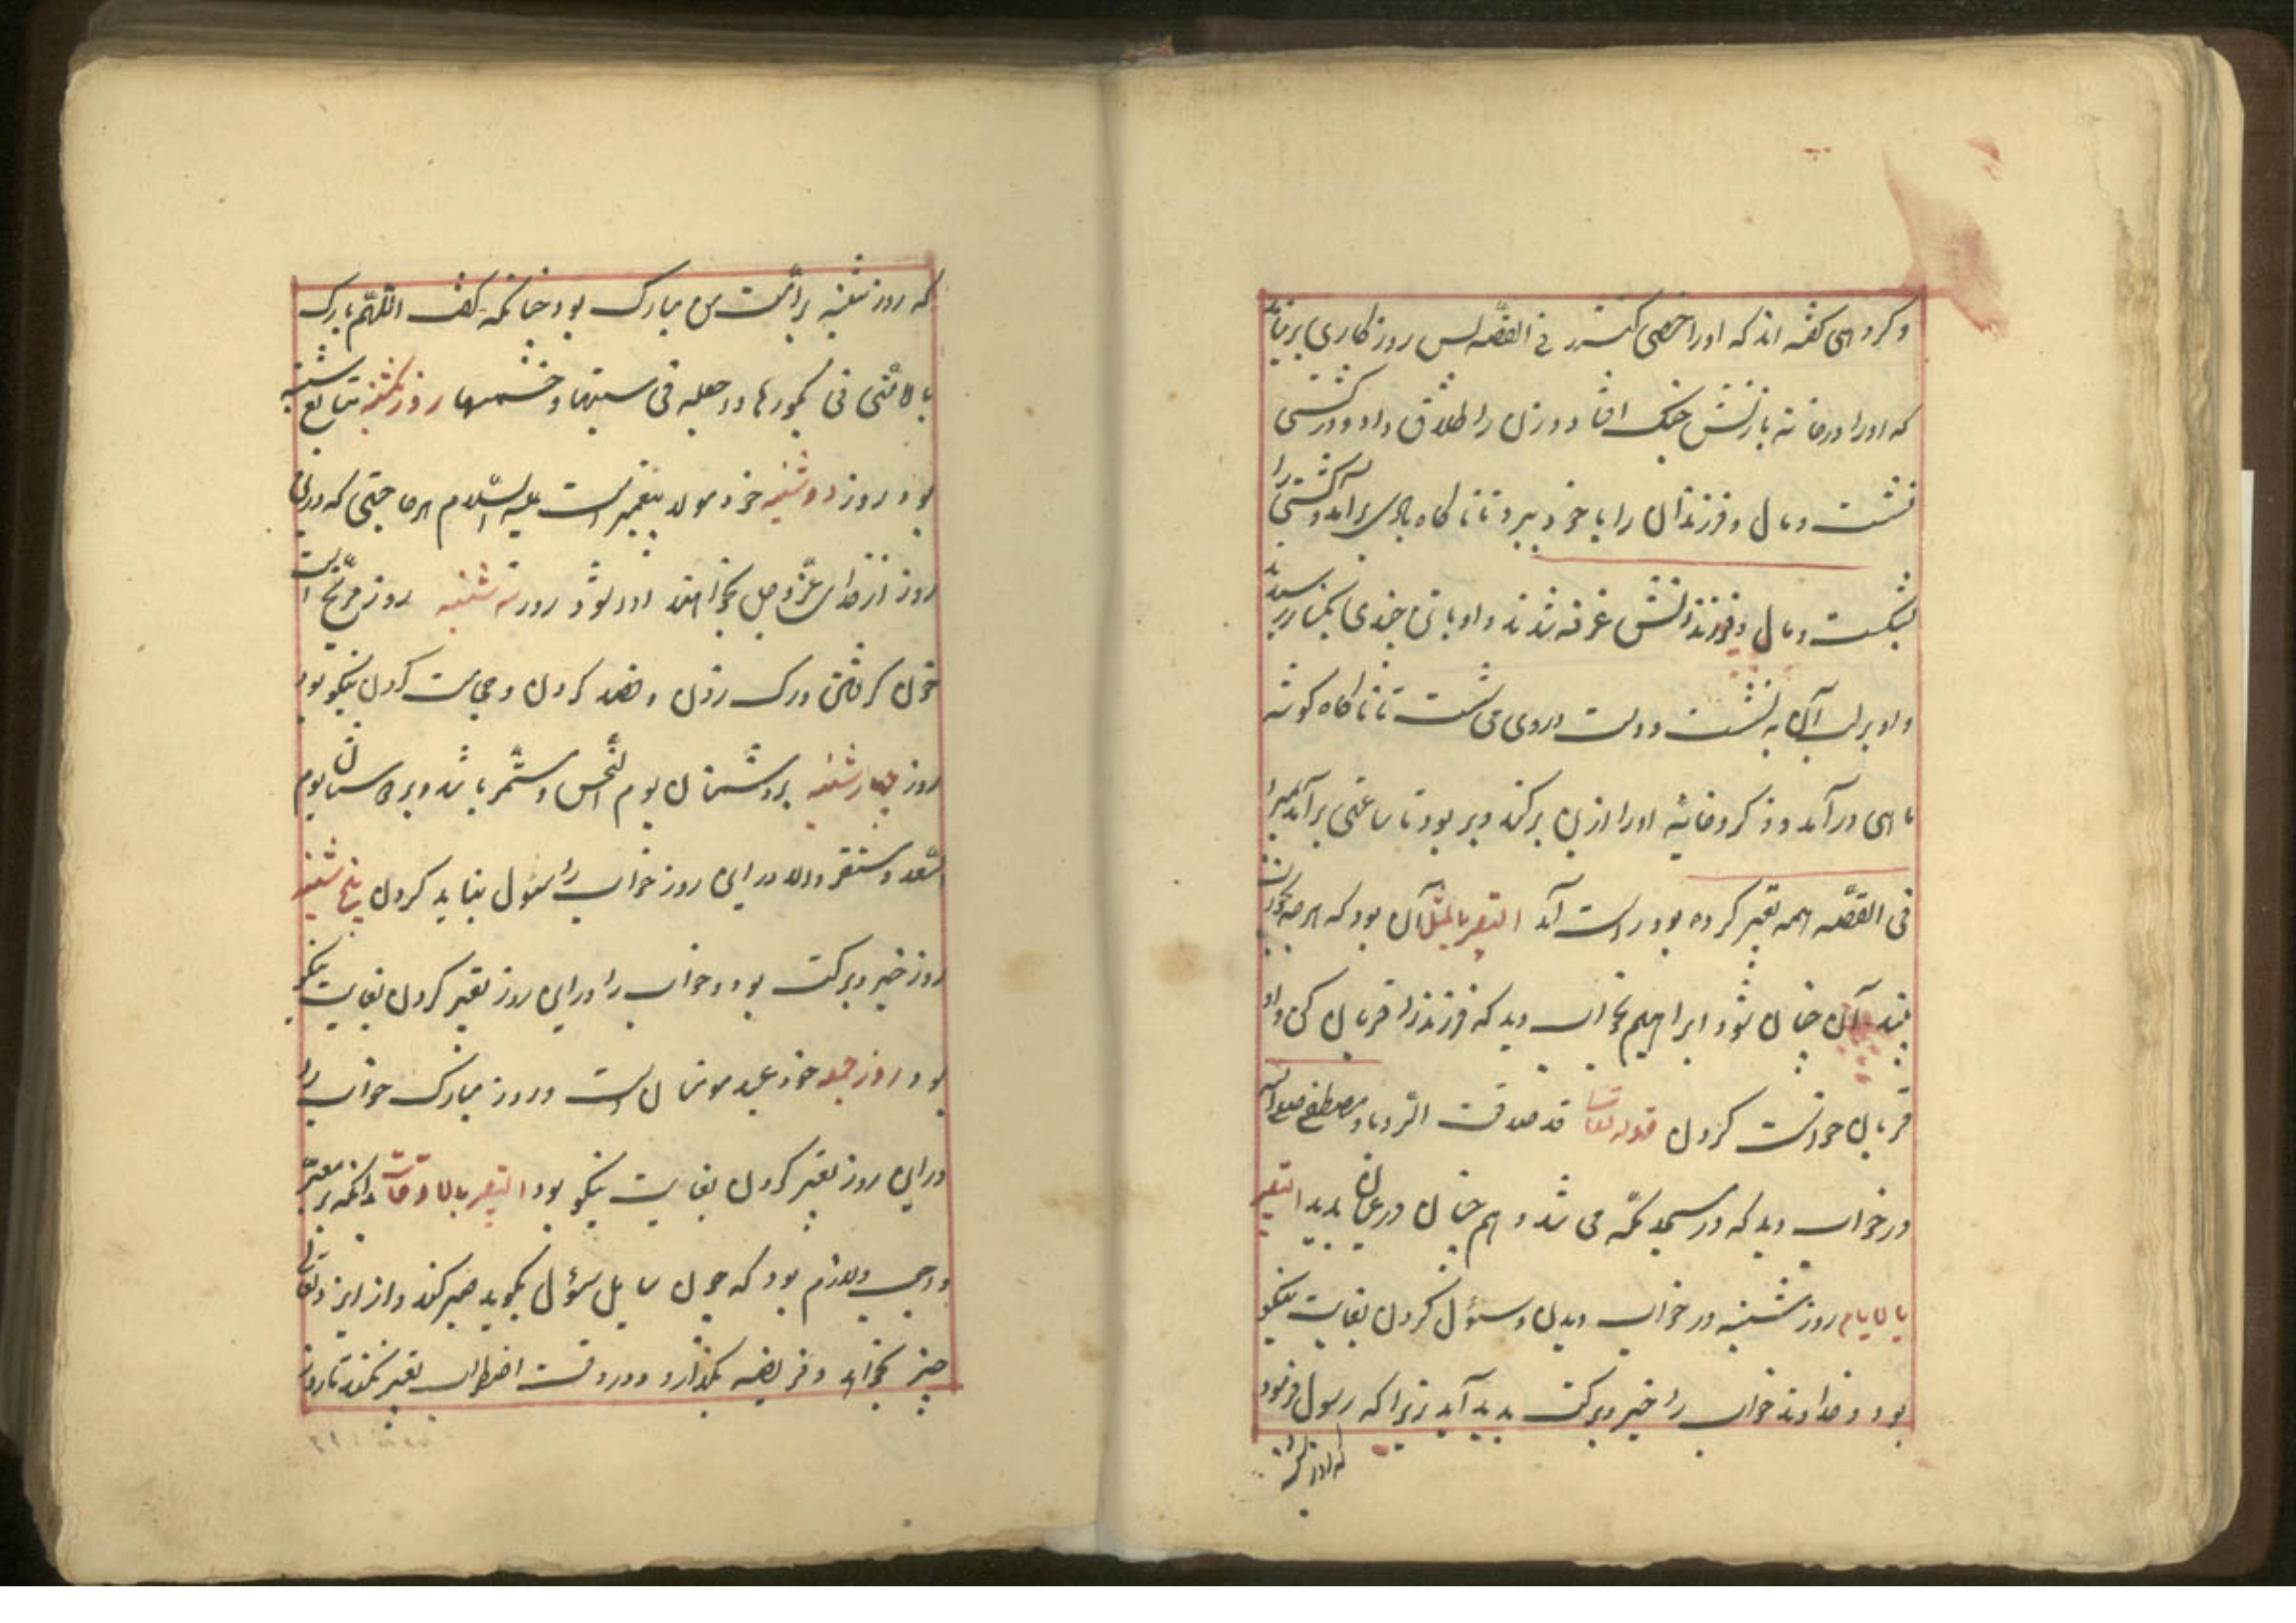 و کروهی کفته اند که او را خصی کنند فی القصّه پس روزکاری بر نیامد
که او را در خانه با زنش جنک افتاد و زن را طلاق داد و در کشتی
نشست و مال و فرزندان را با خود ببرد تا ناکاه بادی برآمد و کشتی را
بشکست و مال و فرزندانش غرقه شدند و او با تن خود بکنار رسید
و او بر لب آب به نشست و دست و روی می شست تا ناکاه کوشه
ماهی در آمد و ذکر و خایه او را از بن برکند و ببرد تا ساعتی برآمد
فی القصّه همه تعبیر کرده بود راست آمد التعبیر بالمثل آن بود که هر چه بخواب
بیند آن چنان شود ابراهیم بخواب دید که فرزند را قربان کی داد
قربان خواست کردن قوله تعالی قد صدقت الرّویا و مصطفی صلی الله
در خواب دید که در مسجد مکّه می شد و هم چنان در عیان بدید التعبیر
بالایام روز شنبه در خواب دیدن و سئول کردن بغایت نیکو
بود و خداوند خواب را خیر و برکت پدید آید زیرا که رسول فرمود
که روز شنبه
که روز شنبه بر امّت من مبارک بود چنانکه کفت اللّهم بارک
بالامّتی فی بکورها و اجعله فی سبتها و خمیسها روز یکشنبه متابع شنبه
بود روز دوشنبه خود مولد پیغمبر است علیه السّلام هر حاجتی که در این
روز از خدای عزّ و جل بخواهند روا شود روز سه شنبه روز مرّیخ است
خون کرفتن و رک زدن و فصد کردن و حجامت کردن نیکو بود
روز چهارشنبه بر دشمنان یوم النّحس مستمّر باشد و بر دوستان یوم
السّعد و مستقر و در این روز خواب را سئول نباید کردن پنج شنبه
روز خیر و برکت بود و خواب را در این روز تعبیر کردن بغایت نیکو
بود روز جمعه خود عید مومنان است و روز مبارک خواب را
در این روز تعبیر کردن بغایت نیکو بود التعبیر بالاوقات بدانکه بر معبّر
واجب و لازم بود که چون سایل سئول بکوید صبر کند و از ایزد تعالی
خیر بخواهد و فریضه بکذارد و در وقت اضطراب تعبیر نکند تا روز